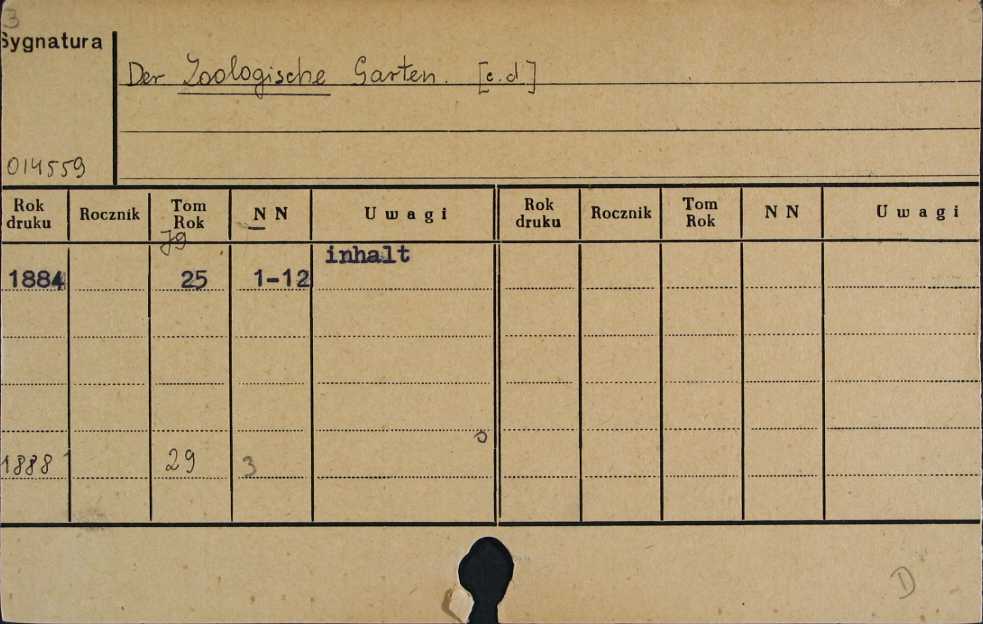 3
Sygnatura
Der Zoologische Garten. [c.d.]
014559
Rok druku Rocznik Tom Rok N N U w a g i Rok druku Rocznik Tom Rok N N U w a g i
Jg
inhalt
1884 25 1-12
1888 29 3
D